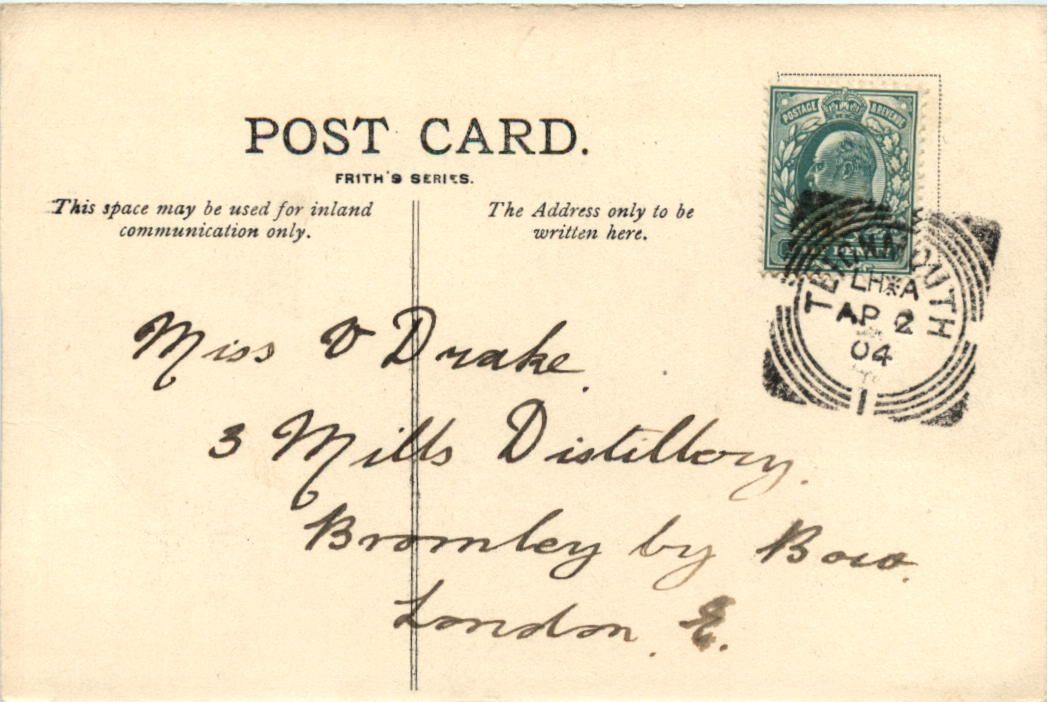 POST CARD.
FRITH'S SERIES.
This space may be used for inland
communication only.
The Address only to be
written here.
POSTAGE & REVENUE
HALF PENNY
TEIGNMOUTH
LH A
AP 2
04
1
Miss V Drake.
3 Mills Distillery.
Bromley by Bow.
London. E.